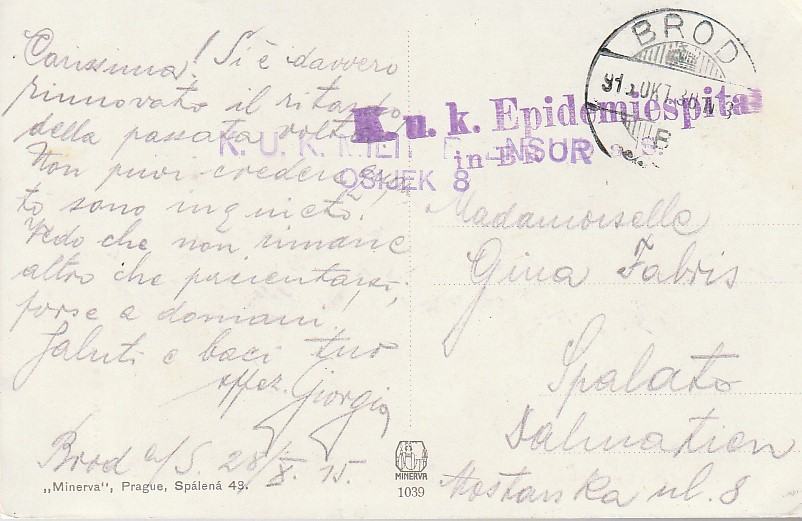 Carissima! Si è davvero
rinnovato il ritardo
della passata volta.
Non puoi credere quan
to sono inquieto!
Vedo che non rimane
altro che pazientarsi,
forse a domani!
Saluti e baci tuo
affez. Giorgio
Brod a/S. 28/X. 15.
„Minerva“, Prague, Spálená 43.
MINERVA
1039
BROD
915 OKT 28
K. u. k. Epidemiespital
in Br
K. U. K. MILIT NSUR
OSIJEK 8
Madamoiselle
Gina Fabris
Spalato
Dalmatien
Mostarska ul. 8